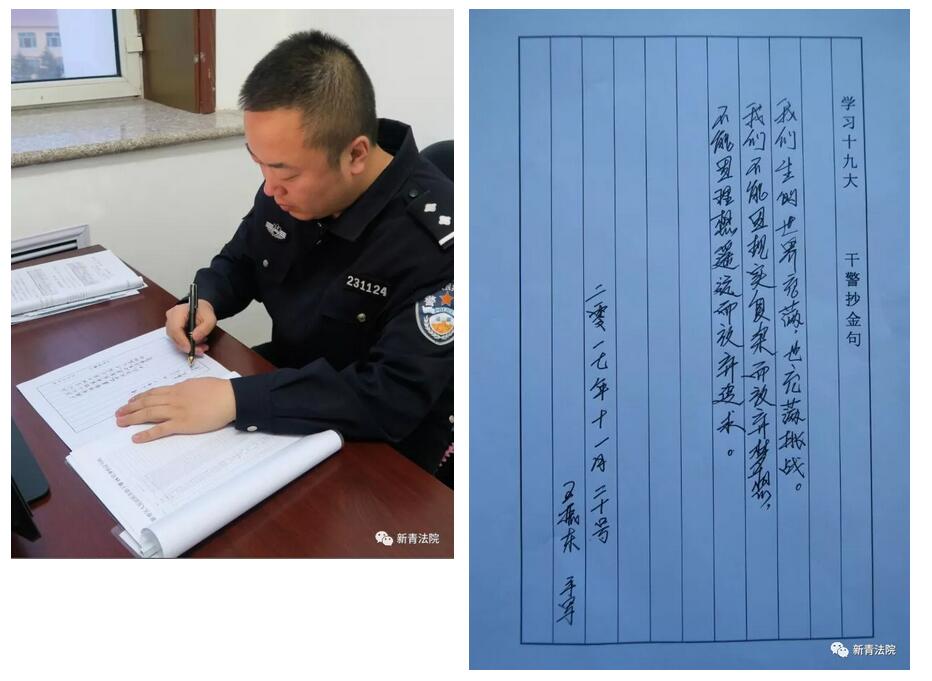 231124
警
新青法院
学习十九大 干警抄金句
我们生的世界充满，也充满挑战。
我们不能因现实复杂而放弃梦想，
不能因理想遥远而放弃追求。
二零一七年十一月二十号
东 手写
新青法院